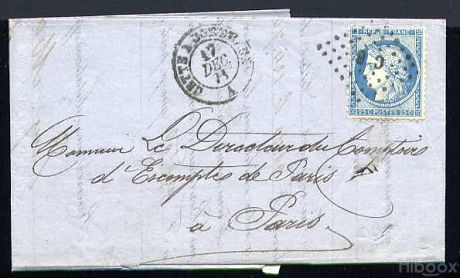 REP. FRANC.
25 C. POSTES 25 C.
17
DEC.
71
Monsieur Le Directeur du Comptoir
d'Escomptes de Paris
à
Paris
Hiboox